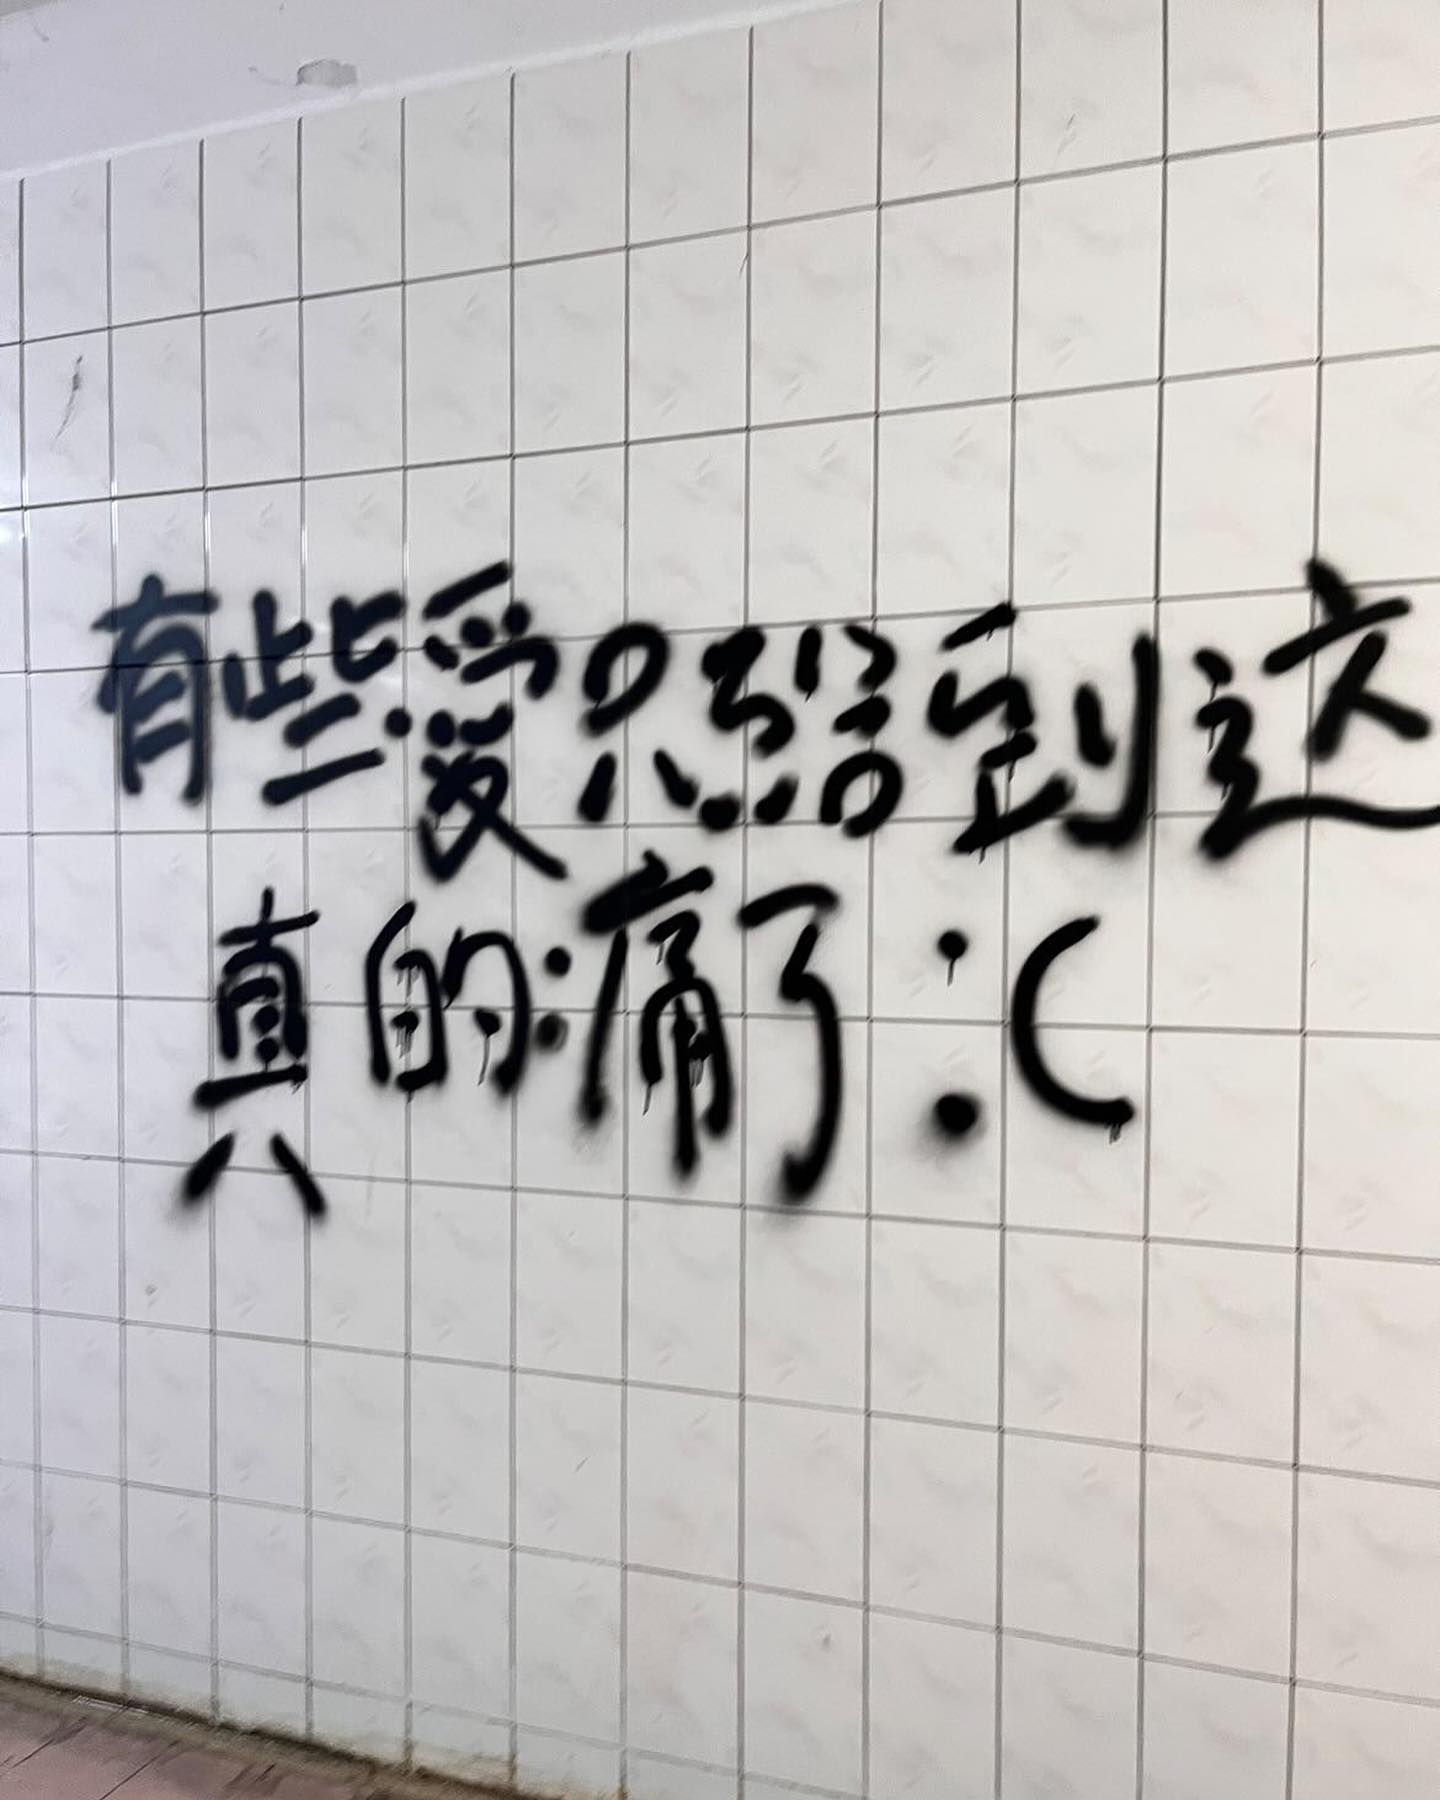 有些愛只給到這
真的痛了:(